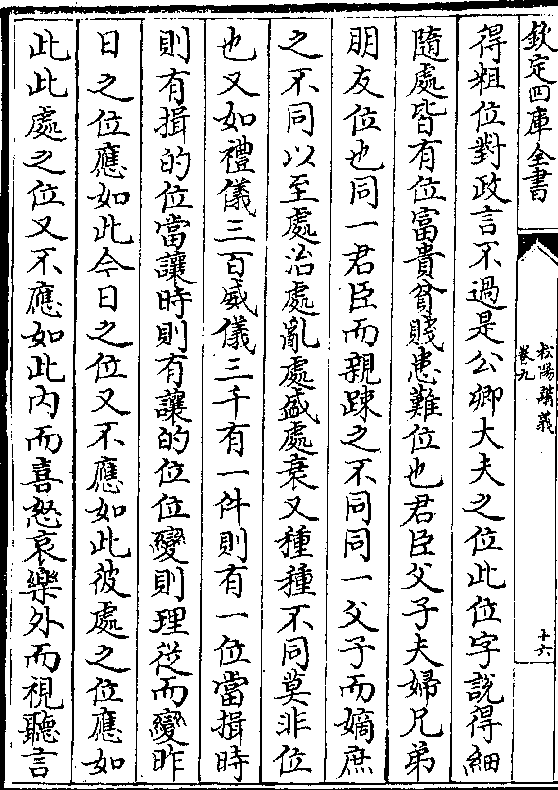 欽定四庫全書
松陽講義
卷九
十六
得粗位對政言不過是公卿大夫之位此位字說得細
隨處皆有位富貴貧賤患難位也君臣父子夫婦兄弟
朋友位也同一君臣而親踈之不同同一父子而嫡庶
之不同以至處治處亂處盛處衰又種種不同莫非位
也又如禮儀三百威儀三千有一件則有一位當揖時
則有揖的位當讓時則有讓的位位變則理從而變昨
日之位應如此今日之位又不應如此彼處之位應如
此此處之位又不應如此内而喜怒哀樂外而視聽言